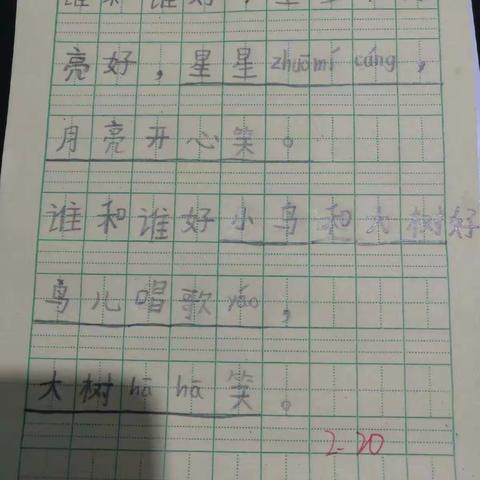 谁和谁好，星星和月
亮好，星星zhuōmí cáng，
月亮开心笑。
谁和谁好小鸟和大树好
鸟儿唱歌yáo，
大树hā hā笑。
2-20